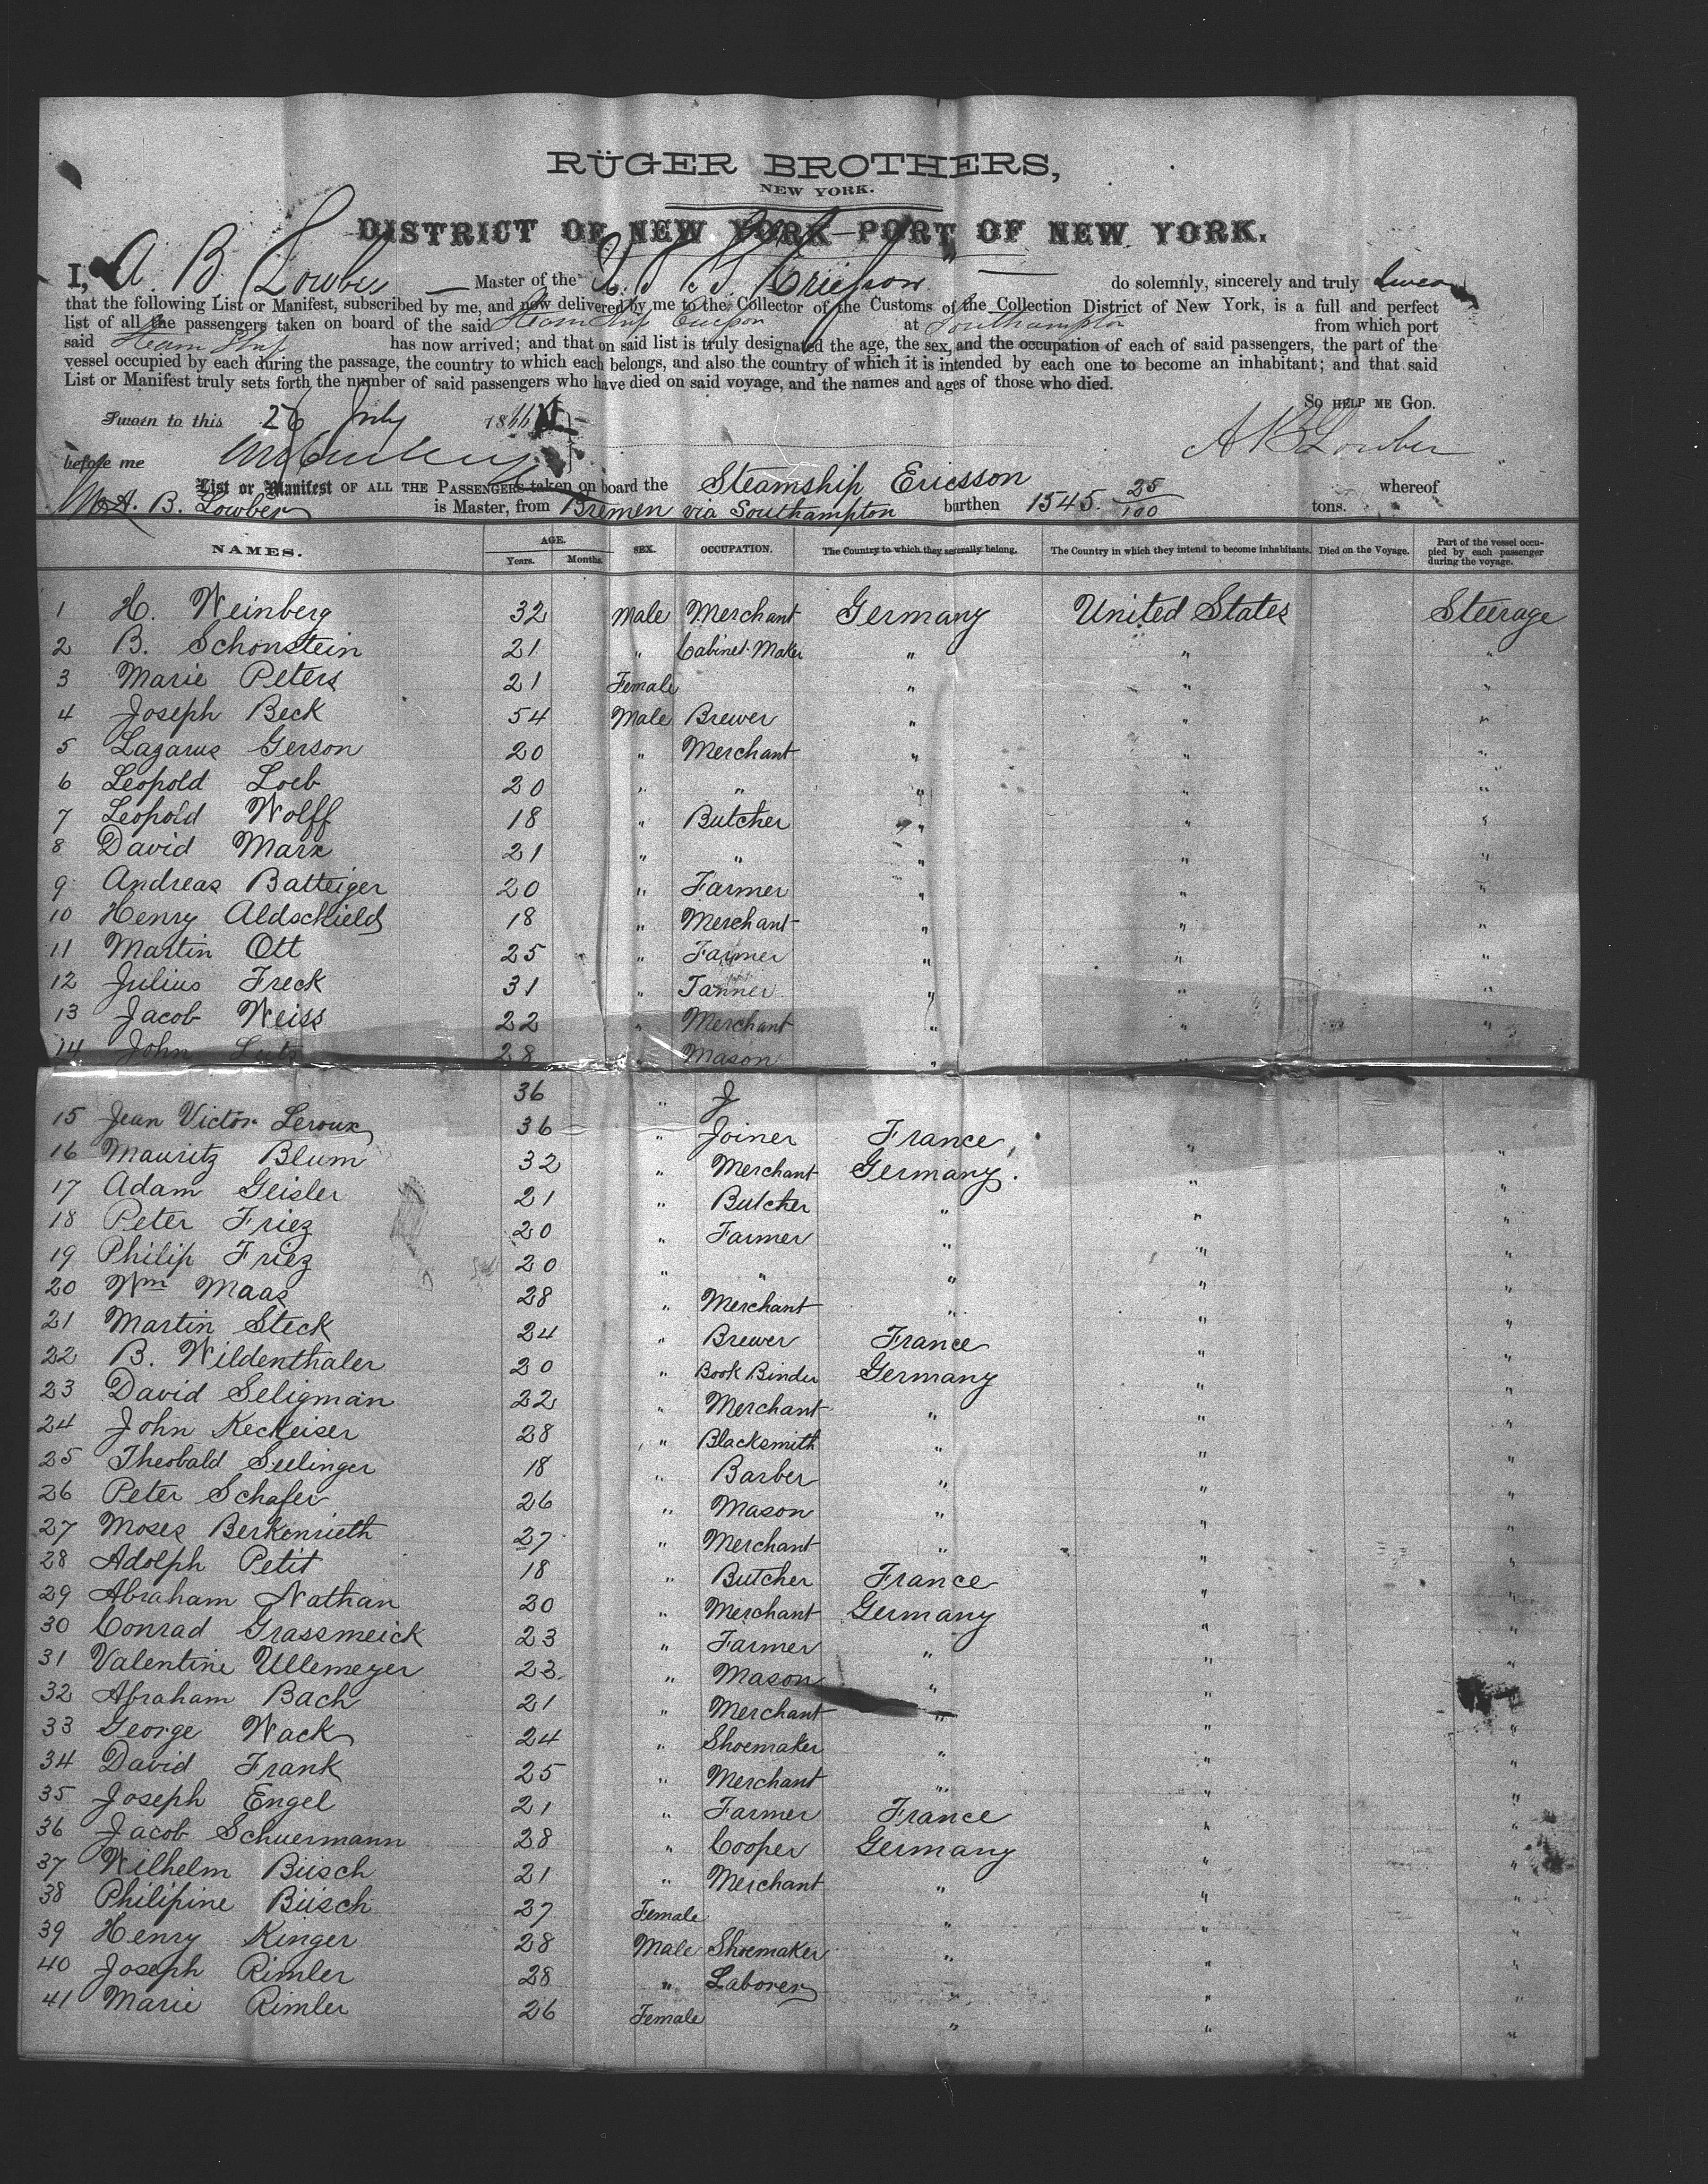 RÜGER BROTHERS,
NEW YORK.
DISTRICT OF NEW YORK—PORT OF NEW YORK.
I, A. B. Lowber — Master of the U. S. S. Ericsson do solemnly, sincerely and truly swear
that the following List or Manifest, subscribed by me, and now delivered by me to the Collector of the Customs of the Collection District of New York, is a full and perfect
list of all the passengers taken on board of the said Steam Ship Ericsson at Southampton from which port
said Steam Ship has now arrived; and that on said list is truly designated the age, the sex, and the occupation of each of said passengers, the part of the
vessel occupied by each during the passage, the country to which each belongs, and also the country of which it is intended by each one to become an inhabitant; and that said
List or Manifest truly sets forth the number of said passengers who have died on said voyage, and the names and ages of those who died.
So help me God.
Sworn to this 26 July 1866
A B Lowber
before me
List or Manifest OF ALL THE PASSENGERS taken on board the Steamship Ericsson whereof
A. B. Lowber is Master, from Bremen via Southampton burthen 1545. 25/100 tons.
NAMES. AGE. Years. Months. SEX. OCCUPATION. The Country to which they severally belong. The Country in which they intend to become inhabitants. Died on the Voyage. Part of the vessel occupied by each passenger during the voyage.
1 H. Weinberg 32 Male Merchant Germany United States Steerage
2 B. Schonstein 21 " Cabinet-Maker " " "
3 Marie Peters 21 Female " " "
4 Joseph Beck 54 Male Brewer " " "
5 Lazarus Gerson 20 " Merchant " " "
6 Leopold Loeb 20 " " " " "
7 Leopold Wolff 18 " Butcher " " "
8 David Marx 21 " " " " "
9 Andreas Batteiger 20 " Farmer " " "
10 Henry Aldschield 18 " Merchant " " "
11 Martin Ott 25 " Farmer " " "
12 Julius Freck 31 " Tanner " " "
13 Jacob Weiss 22 " Merchant " " "
14 John Lutz 28 " Mason " "
36 " J
15 Jean Victor Leroux 36 " Joiner France " "
16 Mauritz Blum 32 " Merchant Germany. " "
17 Adam Geisler 21 " Butcher " " "
18 Peter Friez 20 " Farmer " " "
19 Philip Friez 20 " " " " "
20 Wm Maas 28 " Merchant " " "
21 Martin Steck 24 " Brewer France " "
22 B. Wildenthaler 20 " Book Binder Germany " "
23 David Seligman 22 " Merchant " " "
24 John Keckeiser 28 " Blacksmith " " "
25 Theobald Seelinger 18 " Barber " " "
26 Peter Schafer 26 " Mason " " "
27 Moses Berkenrieth 27 " Merchant " " "
28 Adolph Petit 18 " Butcher France " "
29 Abraham Nathan 20 " Merchant Germany " "
30 Conrad Grassmeick 23 " Farmer " " "
31 Valentine Ullemeyer 23 " Mason " " "
32 Abraham Bach 21 " Merchant " " "
33 George Wack 24 " Shoemaker " " "
34 David Frank 25 " Merchant " " "
35 Joseph Engel 21 " Farmer France " "
36 Jacob Schuermann 28 " Cooper Germany " "
37 Wilhelm Büsch 21 " Merchant " " "
38 Philipine Büsch 27 Female " " "
39 Henry Kinger 28 Male Shoemaker " " "
40 Joseph Rimler 28 " Laborer " " "
41 Marie Rimler 26 Female " " "